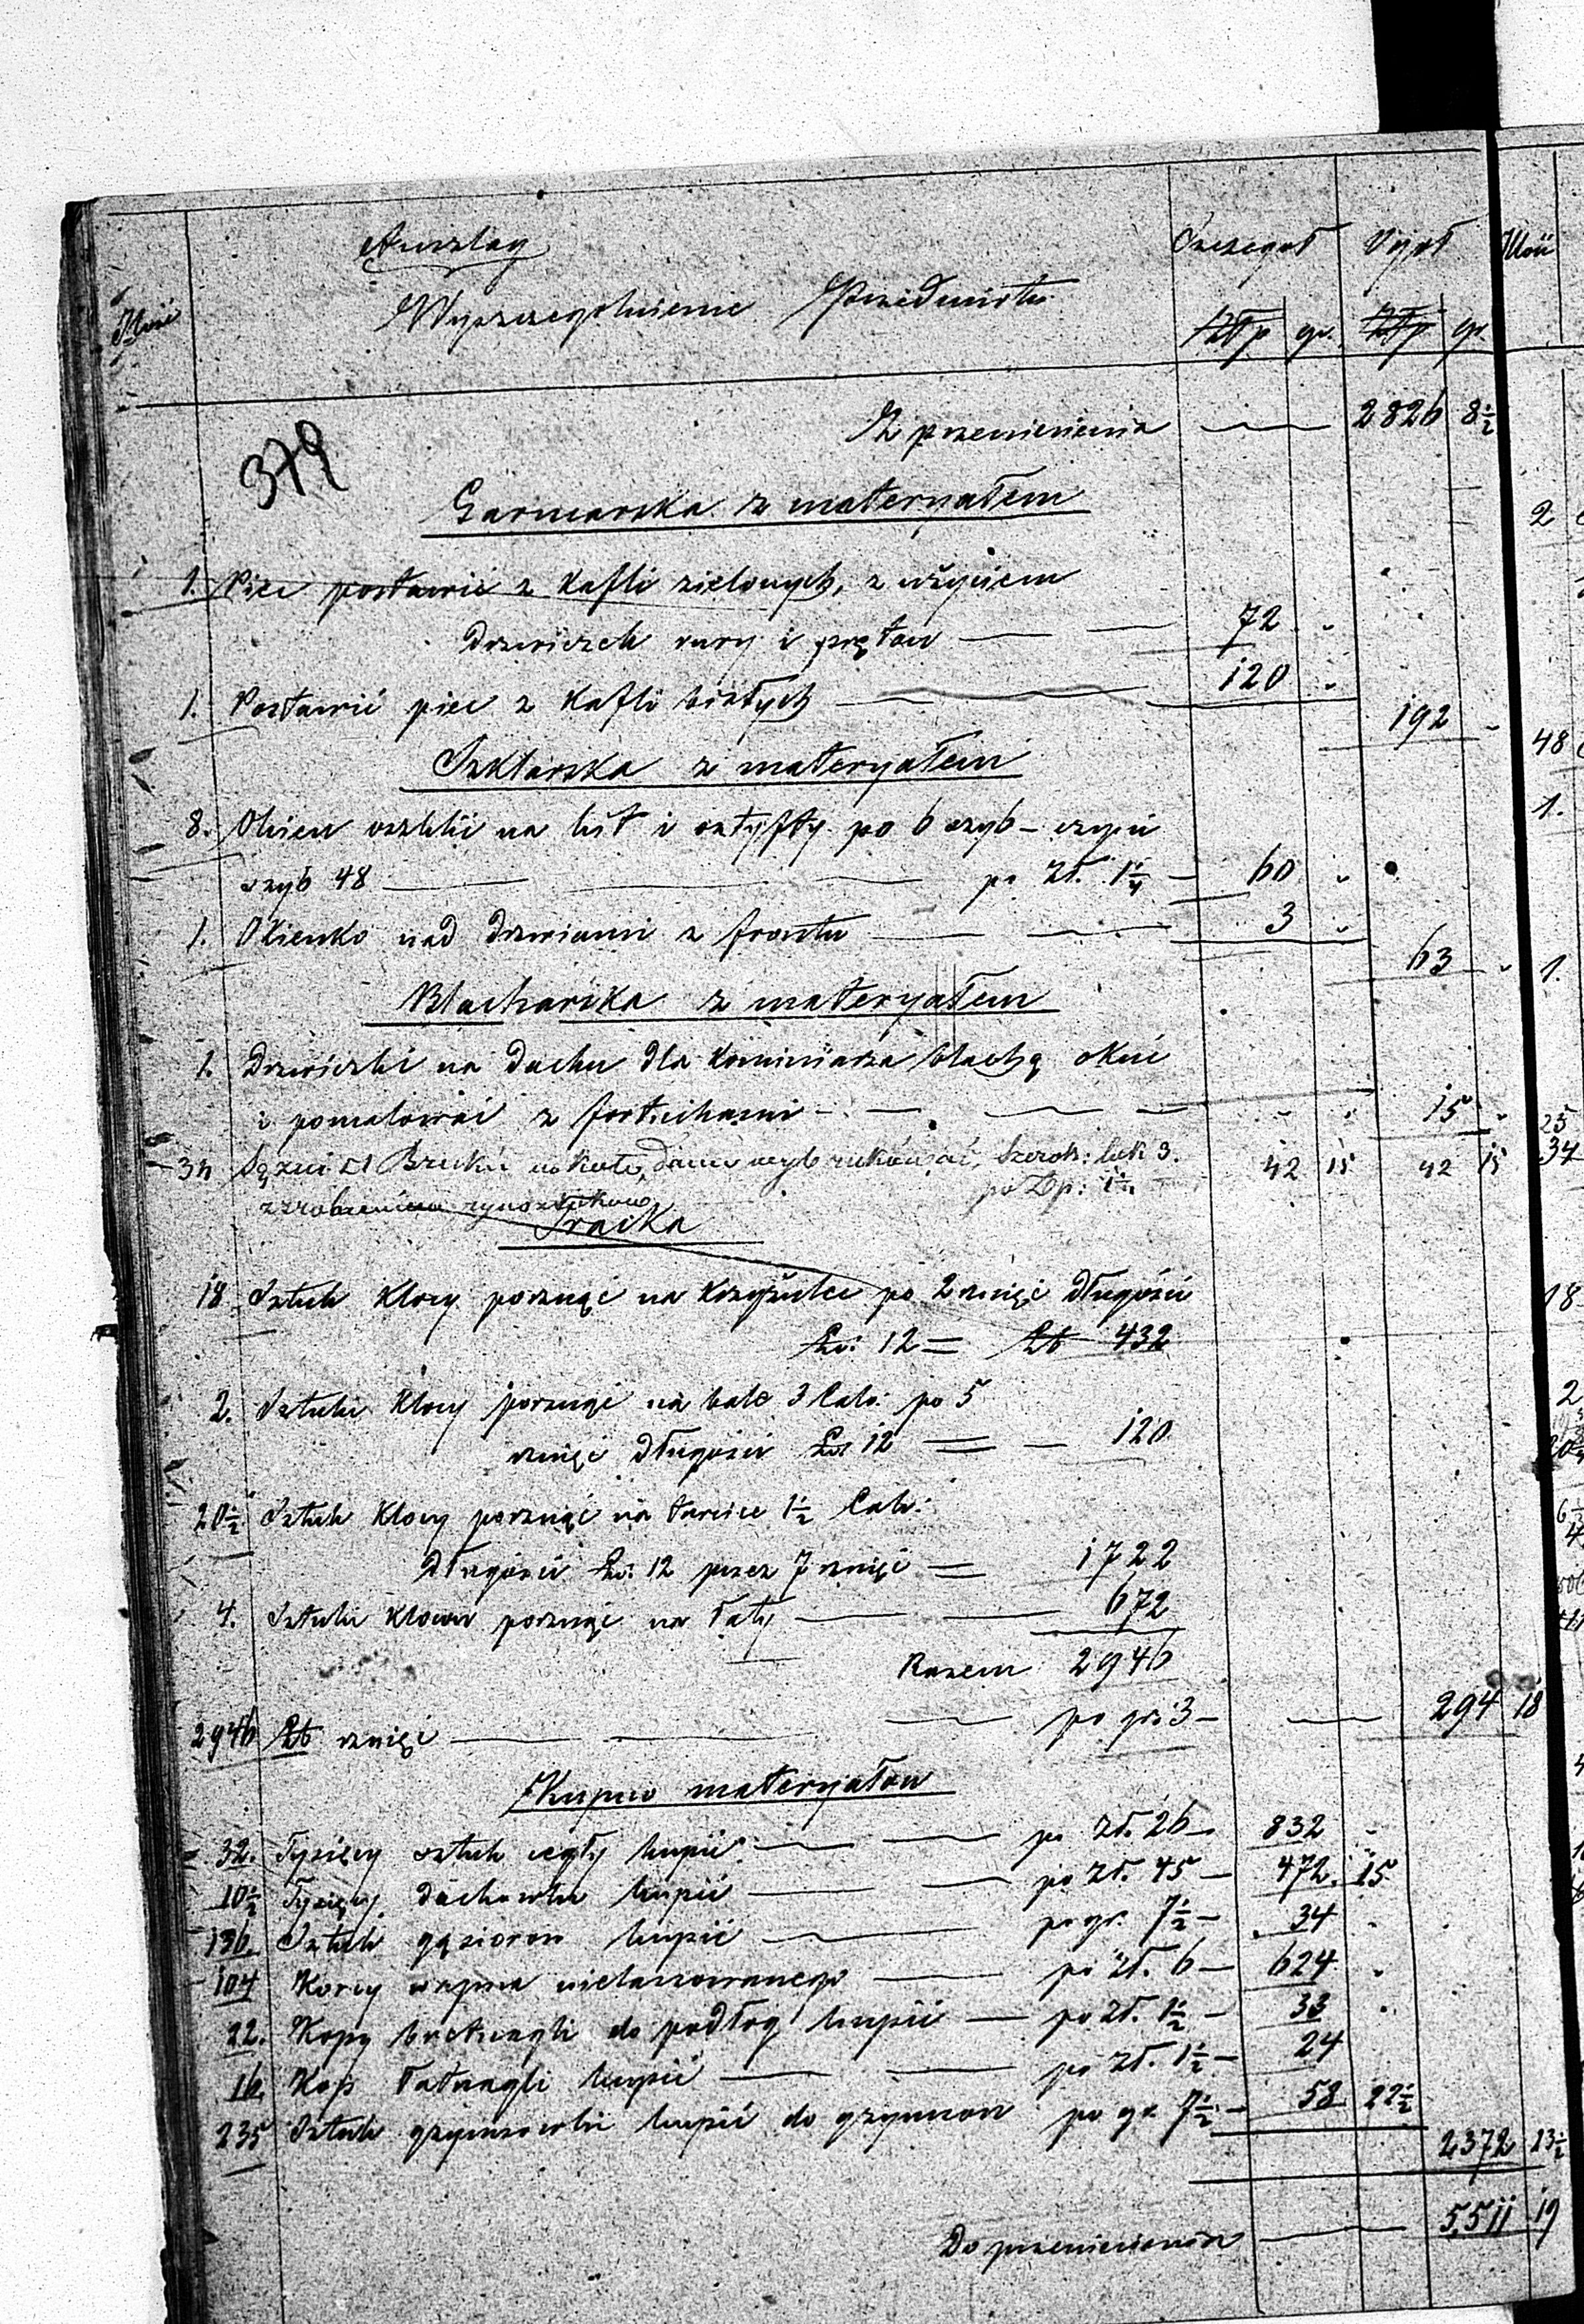 Anszlag
Szczegół Ogół
Ilość Wyszczególnienie Przedmiotu
Złp gr. Złp gr.
Z przeniesienia 2826 8½
379
Garncarska z materyałem
1. Piec postawić z kafli zielonych, z użyciem
drzwiczek rury i prętów 72 "
1. Postawić piec z kafli białych 120 "
192 "
Szklarska z materyałem
8. Okien oszklić na kit i sztyfty po 6 szyb – czyni
szyb 48 po zł. 1¼ 60 "
1. Okienko nad drzwiami z frontu 3 "
63 "
Blacharska z materyałem
1. Drzwiczki na dachu dla kominiarza blachą okuć
i pomalować z fartuchami 15 "
34 Sążni □ Bruku na koło domu wybrukować, Szerok: łok 3.
po Zp: 1¼ 42 15 42 15
z zrobieniem rynsztoków
Tracka
18 Sztuk kłocy porznąć na krzyżulce po 2 rznięć długości
Łoi 12 = Łb 432
2. Sztuki kłocy porznąć na bale 3 Calo: po 5
rznięć długości Łoi 12 = 120
20½ Sztuk kłocy porznąć na tarcice 1½ Calo:
długości Łoi 12 przez 7 rznięć = 1722
4. Sztuki kłocow porznąć na łaty 672
Razem 2946
2946 Łb rznięć po gr: 3 294 18
Kupno materyałow
32. Tysięcy sztuk cegły kupić po zł. 26 832 "
10½ Tysięcy dachowki kupić po zł. 45 472 15
136. Sztuk gąsiorow kupić po gr. 7½ 34 "
104 Korcy wapna nielasowanego po zł. 6 624 "
22. Kopy bretnagli do podłog kupić po zł. 1½ 33 "
16. Kop łatnagli kupić po zł. 1½ 24
235 Sztuk gzymsowki kupić do gzymsow po gr 7½ 58 22½
2372 13½
Do przeniesienia 5,511 19